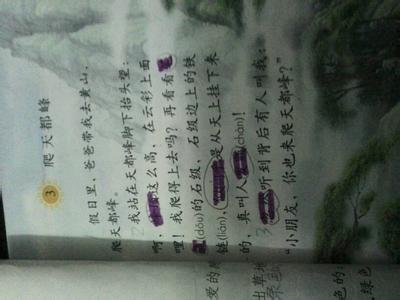 3 爬天都峰
假日里，爸爸带我去黄山，
爬天都峰。
我站在天都峰脚下抬头望：
啊，这么高，在云彩上面
哩！我爬得上去吗？再看看笔
(dǒu)的石级，石级边上的铁
链(liàn)，是从天上挂下来
的，真叫人(chàn)！
听到背后有人叫我：
“小朋友，你也来爬天都峰？”
爱的
出草地
色的
绿色